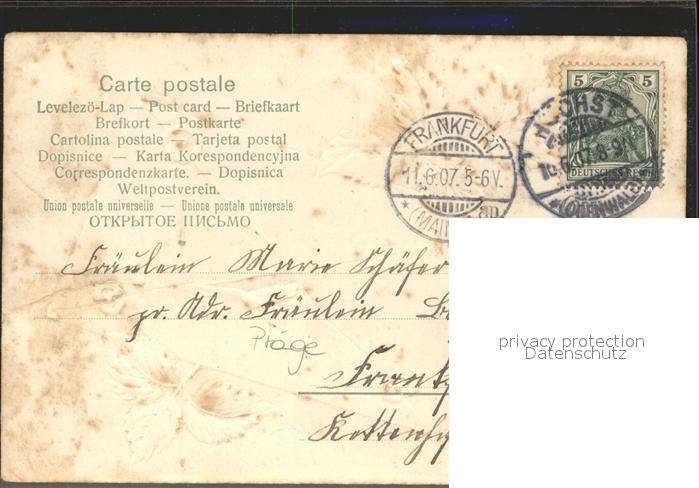 Carte postale
Levelező-Lap — Post card — Briefkaart
Brefkort — Postkarte
Cartolina postale — Tarjeta postal
Dopisnice — Karta Korespondencyjna
Correspondenzkarte. — Dopisnica
Weltpostverein.
Union postale universelle — Unione postale universale
ОТКРЫТОЕ ПИСЬМО
FRANKFURT
11.6.07. 5-6V.
* (MAIN
an
5 5
DEUTSCHES REICH
HÖCHST
10.6.07. 8-9
(ODENWALD)
Fräulein Marie Schäfer
pr. Adr. Fräulein
Präge
Frankf
privacy protection
Datenschutz